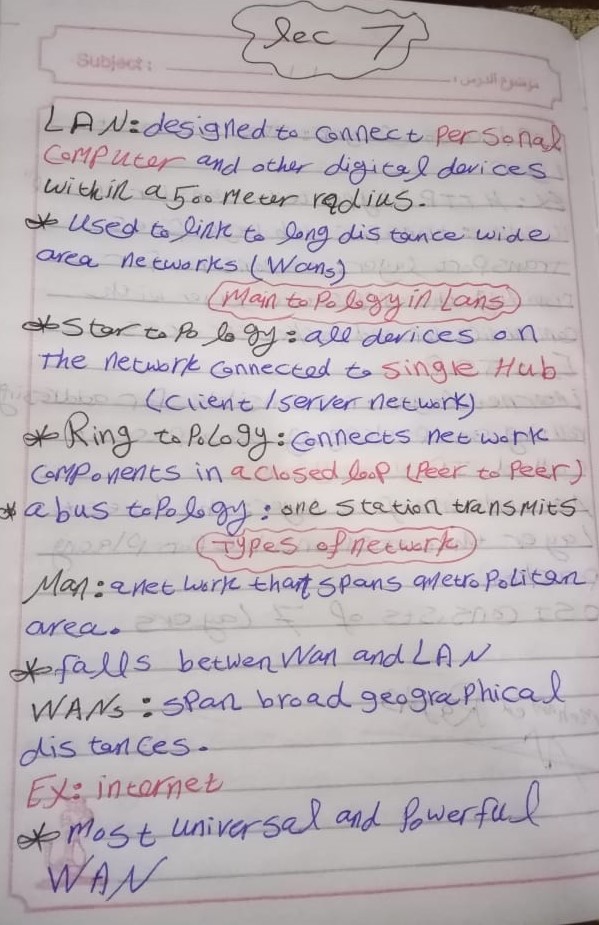 lec 7
Subject:
موضوع الدرس:
LAN: designed to connect personal
computer and other digital devices
within a 500 meter radius.
* Used to link to long distance wide
area networks (Wans)
Main topology in Lans
* Star topology: all devices on
the network connected to single Hub
(client/server network)
* Ring topology: connects network
components in a closed loop (Peer to Peer)
* a bus topology: one station transmits
types of network
Man: a network that spans a metropolitan
area.
* falls betwen Wan and LAN
WANs: span broad geographical
distances.
EX: internet
* most universal and powerful
WAN